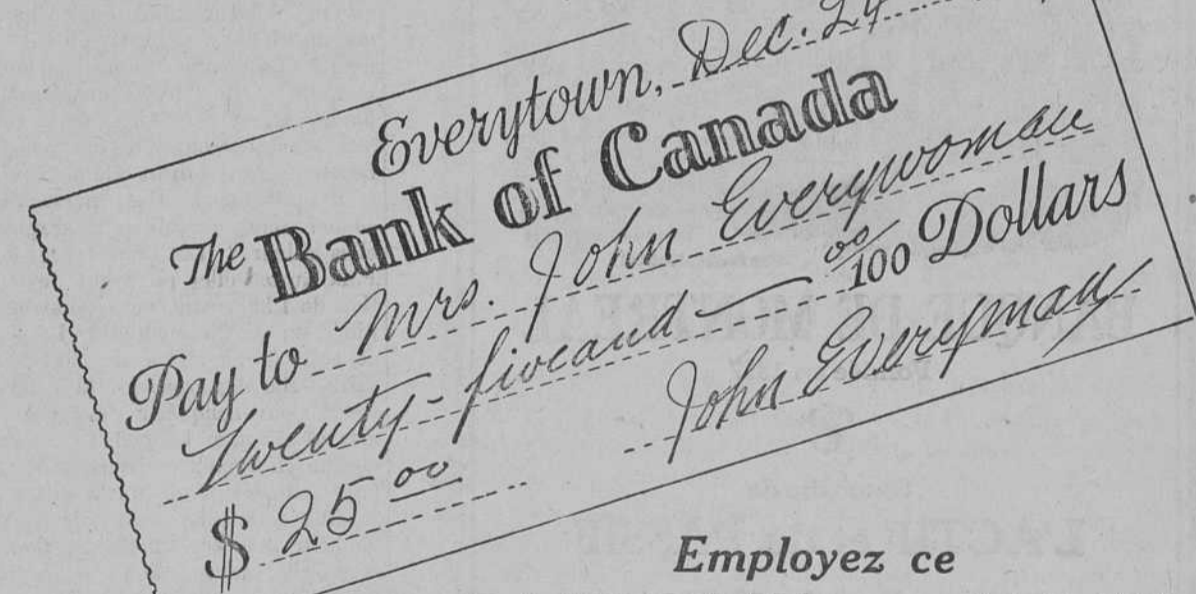 Everytown, Dec. 24
The Bank of Canada
Pay to Mrs. John Everywoman
Twenty-five and 00/100 Dollars
$ 25 00
John Everyman
Employez ce